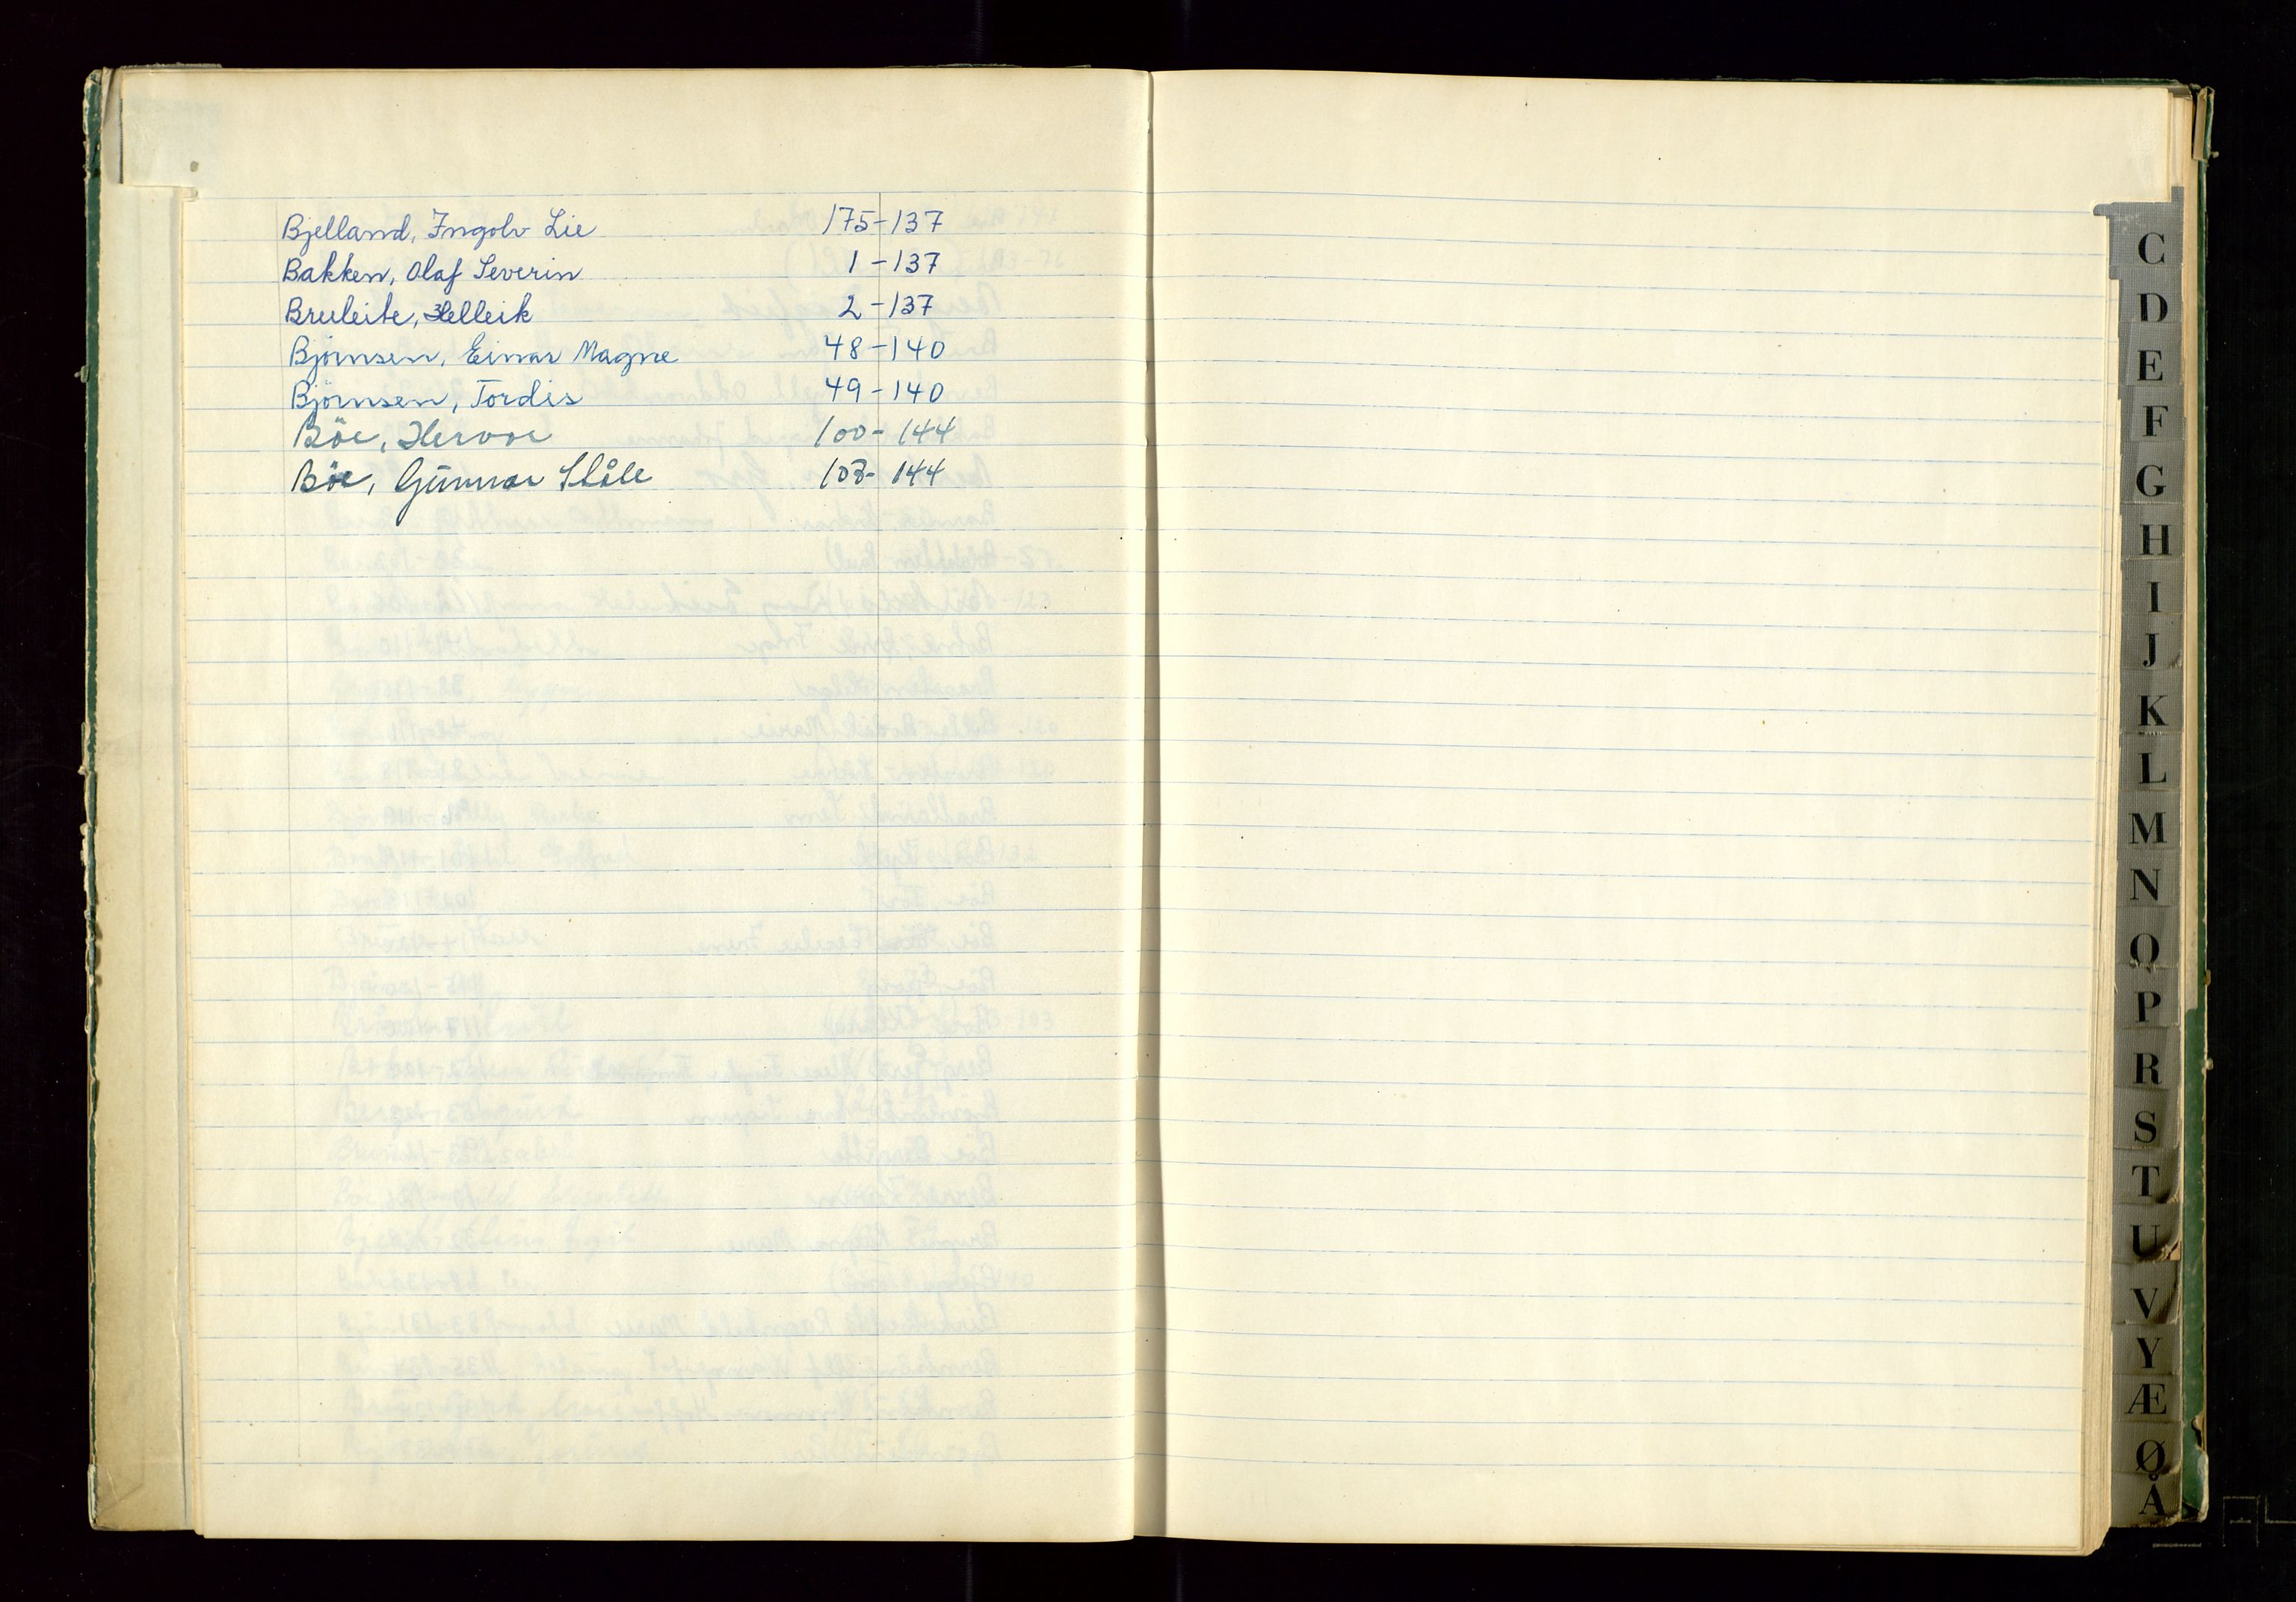 Bjelland, Ingolv Lie 175-137
Bakken, Olaf Severin 1-137
Bruleite, Helleik 2-137
Björnsen, Einar Magne 48-140
Björnsen, Tordis 49-140
Böe, 100-144
Böe, Gunnar Ståle 103-144
C
D
E
F
G
H
I
J
K
L
M
N
O
P
R
S
T
U
V
Y
Æ
Ø
Å